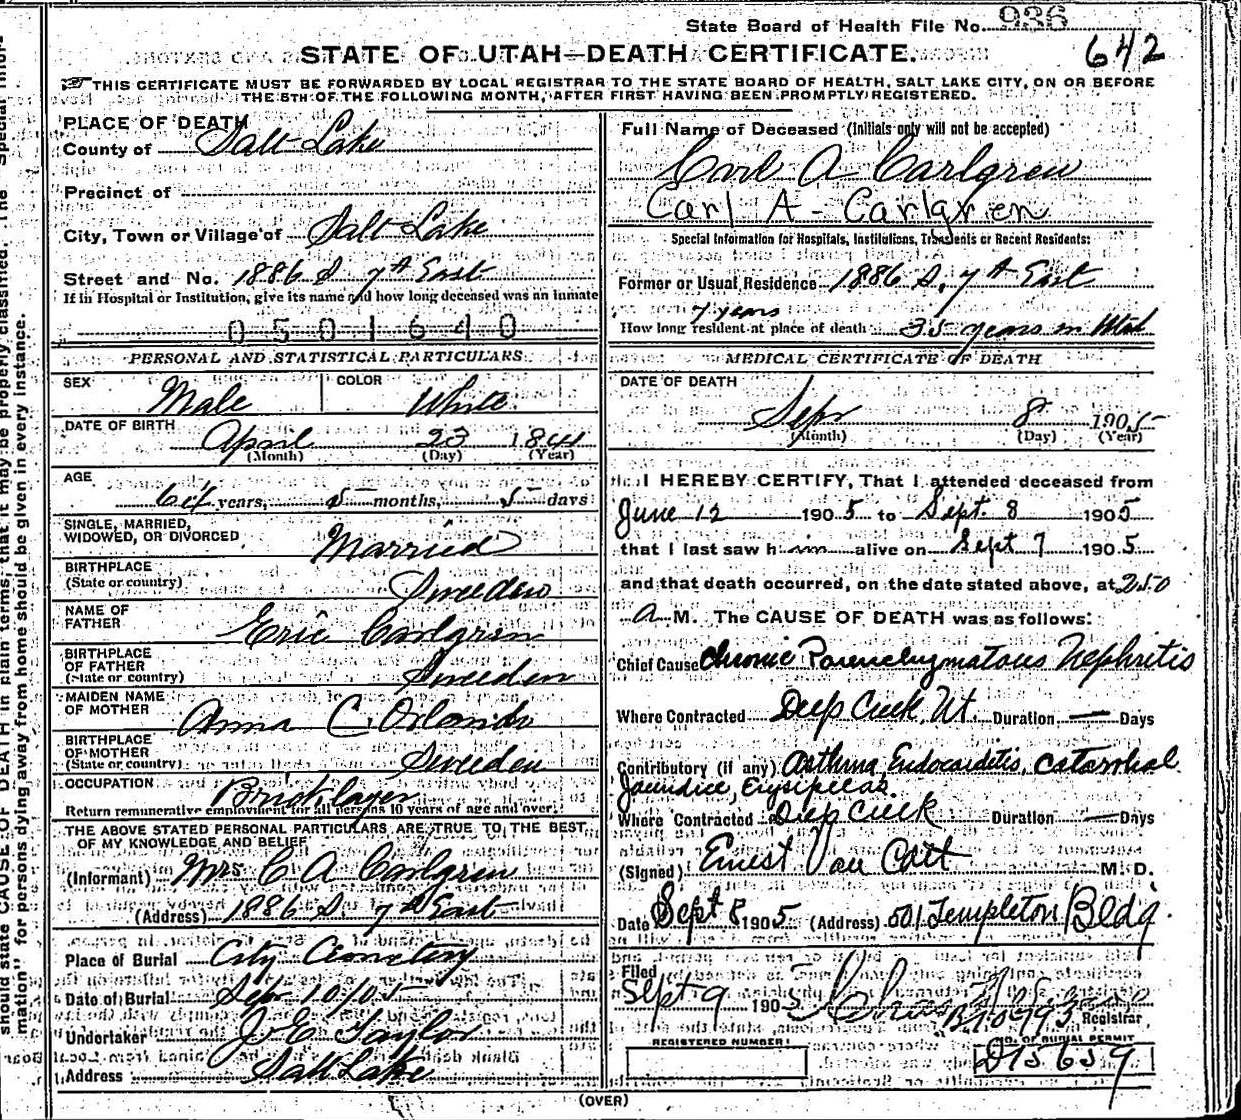 State Board of Health File No. 936
642
STATE OF UTAH—DEATH CERTIFICATE.
THIS CERTIFICATE MUST BE FORWARDED BY LOCAL REGISTRAR TO THE STATE BOARD OF HEALTH, SALT LAKE CITY, ON OR BEFORE
THE 5TH OF THE FOLLOWING MONTH, AFTER FIRST HAVING BEEN PROMPTLY REGISTERED.
PLACE OF DEATH
County of Salt Lake
Precinct of
City, Town or Village of Salt Lake
Street and No. 1886 S 7th East
If in Hospital or Institution, give its name and how long deceased was an inmate
0501640
PERSONAL AND STATISTICAL PARTICULARS
SEX Male COLOR White
DATE OF BIRTH April 23 1841
(Month) (Day) (Year)
AGE
64 years, 5 months, 5 days
SINGLE, MARRIED,
WIDOWED, OR DIVORCED Married
BIRTHPLACE
(State or country) Sweeden
NAME OF
FATHER Eric Carlgren
BIRTHPLACE
OF FATHER
(State or country) Sweeden
MAIDEN NAME
OF MOTHER Anna C. Orlando
BIRTHPLACE
OF MOTHER
(State or country) Sweeden
OCCUPATION Bricklayer
Return remunerative employment for all persons 10 years of age and over.
THE ABOVE STATED PERSONAL PARTICULARS ARE TRUE TO THE BEST
OF MY KNOWLEDGE AND BELIEF
(Informant) Mrs C A Carlgren
(Address) 1886 S. 7th East
Place of Burial City Cemetery
Date of Burial Sep 10/05
Undertaker J E Taylor
Address Salt Lake
Full Name of Deceased (Initials only will not be accepted)
Carl A Carlgren
Carl A - Carlgren
Special Information for Hospitals, Institutions, Transients or Recent Residents:
Former or Usual Residence 1886 S. 7th East
7 years
How long resident at place of death 35 years in Utah
MEDICAL CERTIFICATE OF DEATH
DATE OF DEATH
Sep 8 1905
(Month) (Day) (Year)
I HEREBY CERTIFY, That I attended deceased from
June 12 1905 to Sept. 8 1905
that I last saw him alive on Sept 7 1905
and that death occurred, on the date stated above, at 250
A M. The CAUSE OF DEATH was as follows:
Chief Cause Chronic Parenchymatous Nephritis
Where Contracted Deep Creek, Ut. Duration — Days
Contributory (if any) Asthma, Endocarditis, catarrhal
Jaundice, Erysipelas.
Where Contracted Deep Creek Duration — Days
(Signed) Ernest Van Cott M. D.
Date Sept 8 1905 (Address) 501 Templeton Bldg.
Filed
Sept 9 1905
Registrar
REGISTERED NUMBER
NO. OF BURIAL PERMIT
(OVER)
should state CAUSE OF DEATH in plain terms, that it may be properly classified. The "Special Infor-
mation" for persons dying away from home should be given in every instance.